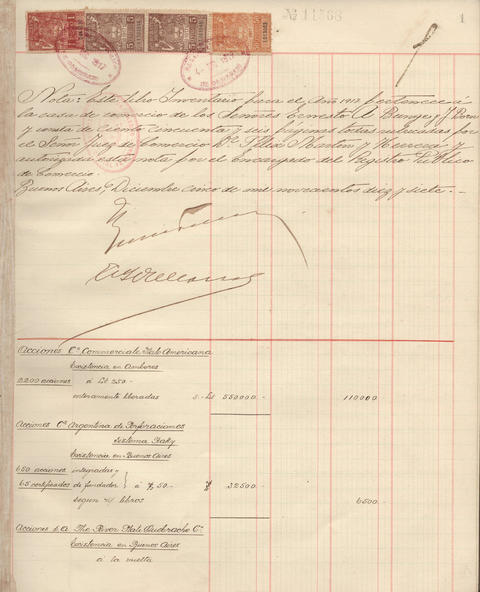 Nº 11568
1
Nota: Este libro Inventario para el año 1917 pertenece á
la casa de comercio de los Señores Ernesto A Bunge y J. Born
y consta de ciento cincuenta y seis páginas todas rubricadas por
el Señor Juez de Comercio Dr Felix Martin y Herrera y
autorizada esta nota por el Encargado del Registro Público
de Comercio.
Buenos Aires, Diciembre cinco de mil novecientos diez y siete.-
Acciones Cª Commerciale Italo Americana
Existencia en Amberes
2200 acciones á Lit 250-
enteramente liberadas 550000.- 110000
Acciones Cª Argentina de Perforaciones
sistema Raky
Existencia en Buenos Aires
650 acciones integradas y
65 certificados de fundador á 50- 32500
segun libros 6500
Acciones S.A. The River Plate
Existencia en Buenos Aires
á la vuelta